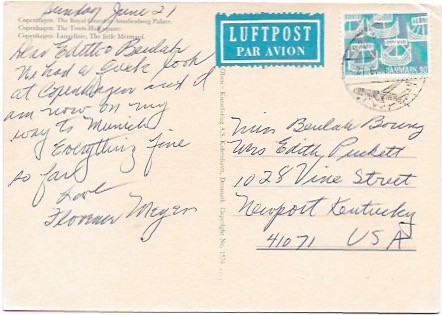 Sunday June 21
Copenhagen. The Royal Guard at Amalienborg Palace.
Copenhagen. The Town-Hall square.
Copenhagen. Langelinie, The little Mermaid.
Dear Edith & Beulah
We had a quick look
at Copenhagen and I
am now on my
way to Munich
Everything fine
so far
Love
Florence Meyer
LUFTPOST
PAR AVION
DANMARK
Miss Beulah
Mrs Edith Puckett
1028 Vine Street
Newport Kentucky
41071 USA